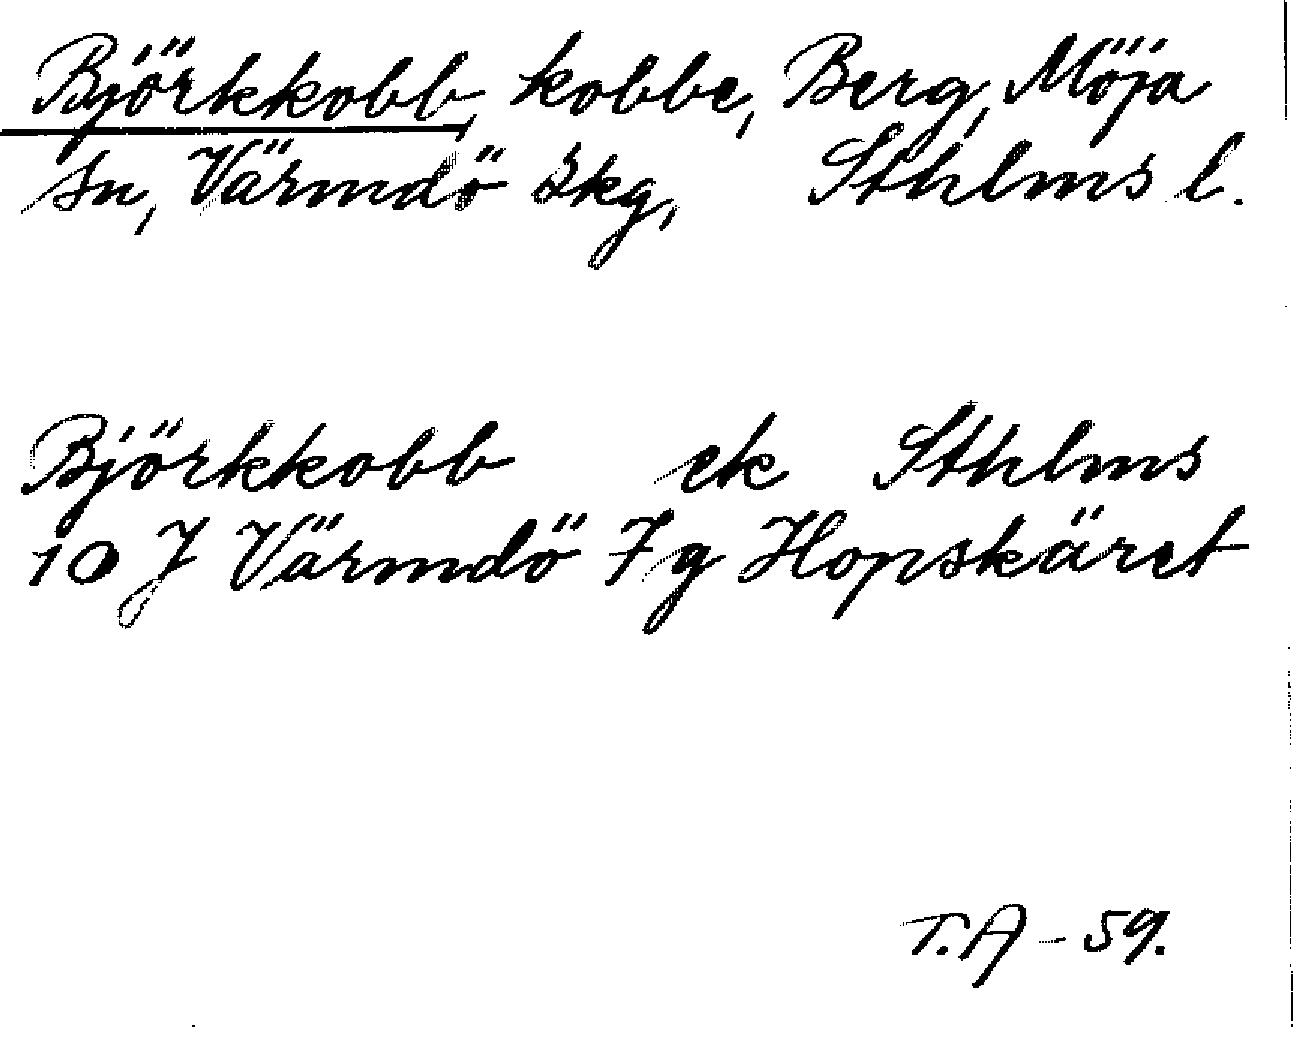 Björkkobb, kobbe, Berg, Möja
sn, Värmdö skg, Sthlms l.
Björkkobb ek Sthlms
10 J Värmdö 7 g Hopskäret
T.A - 59.